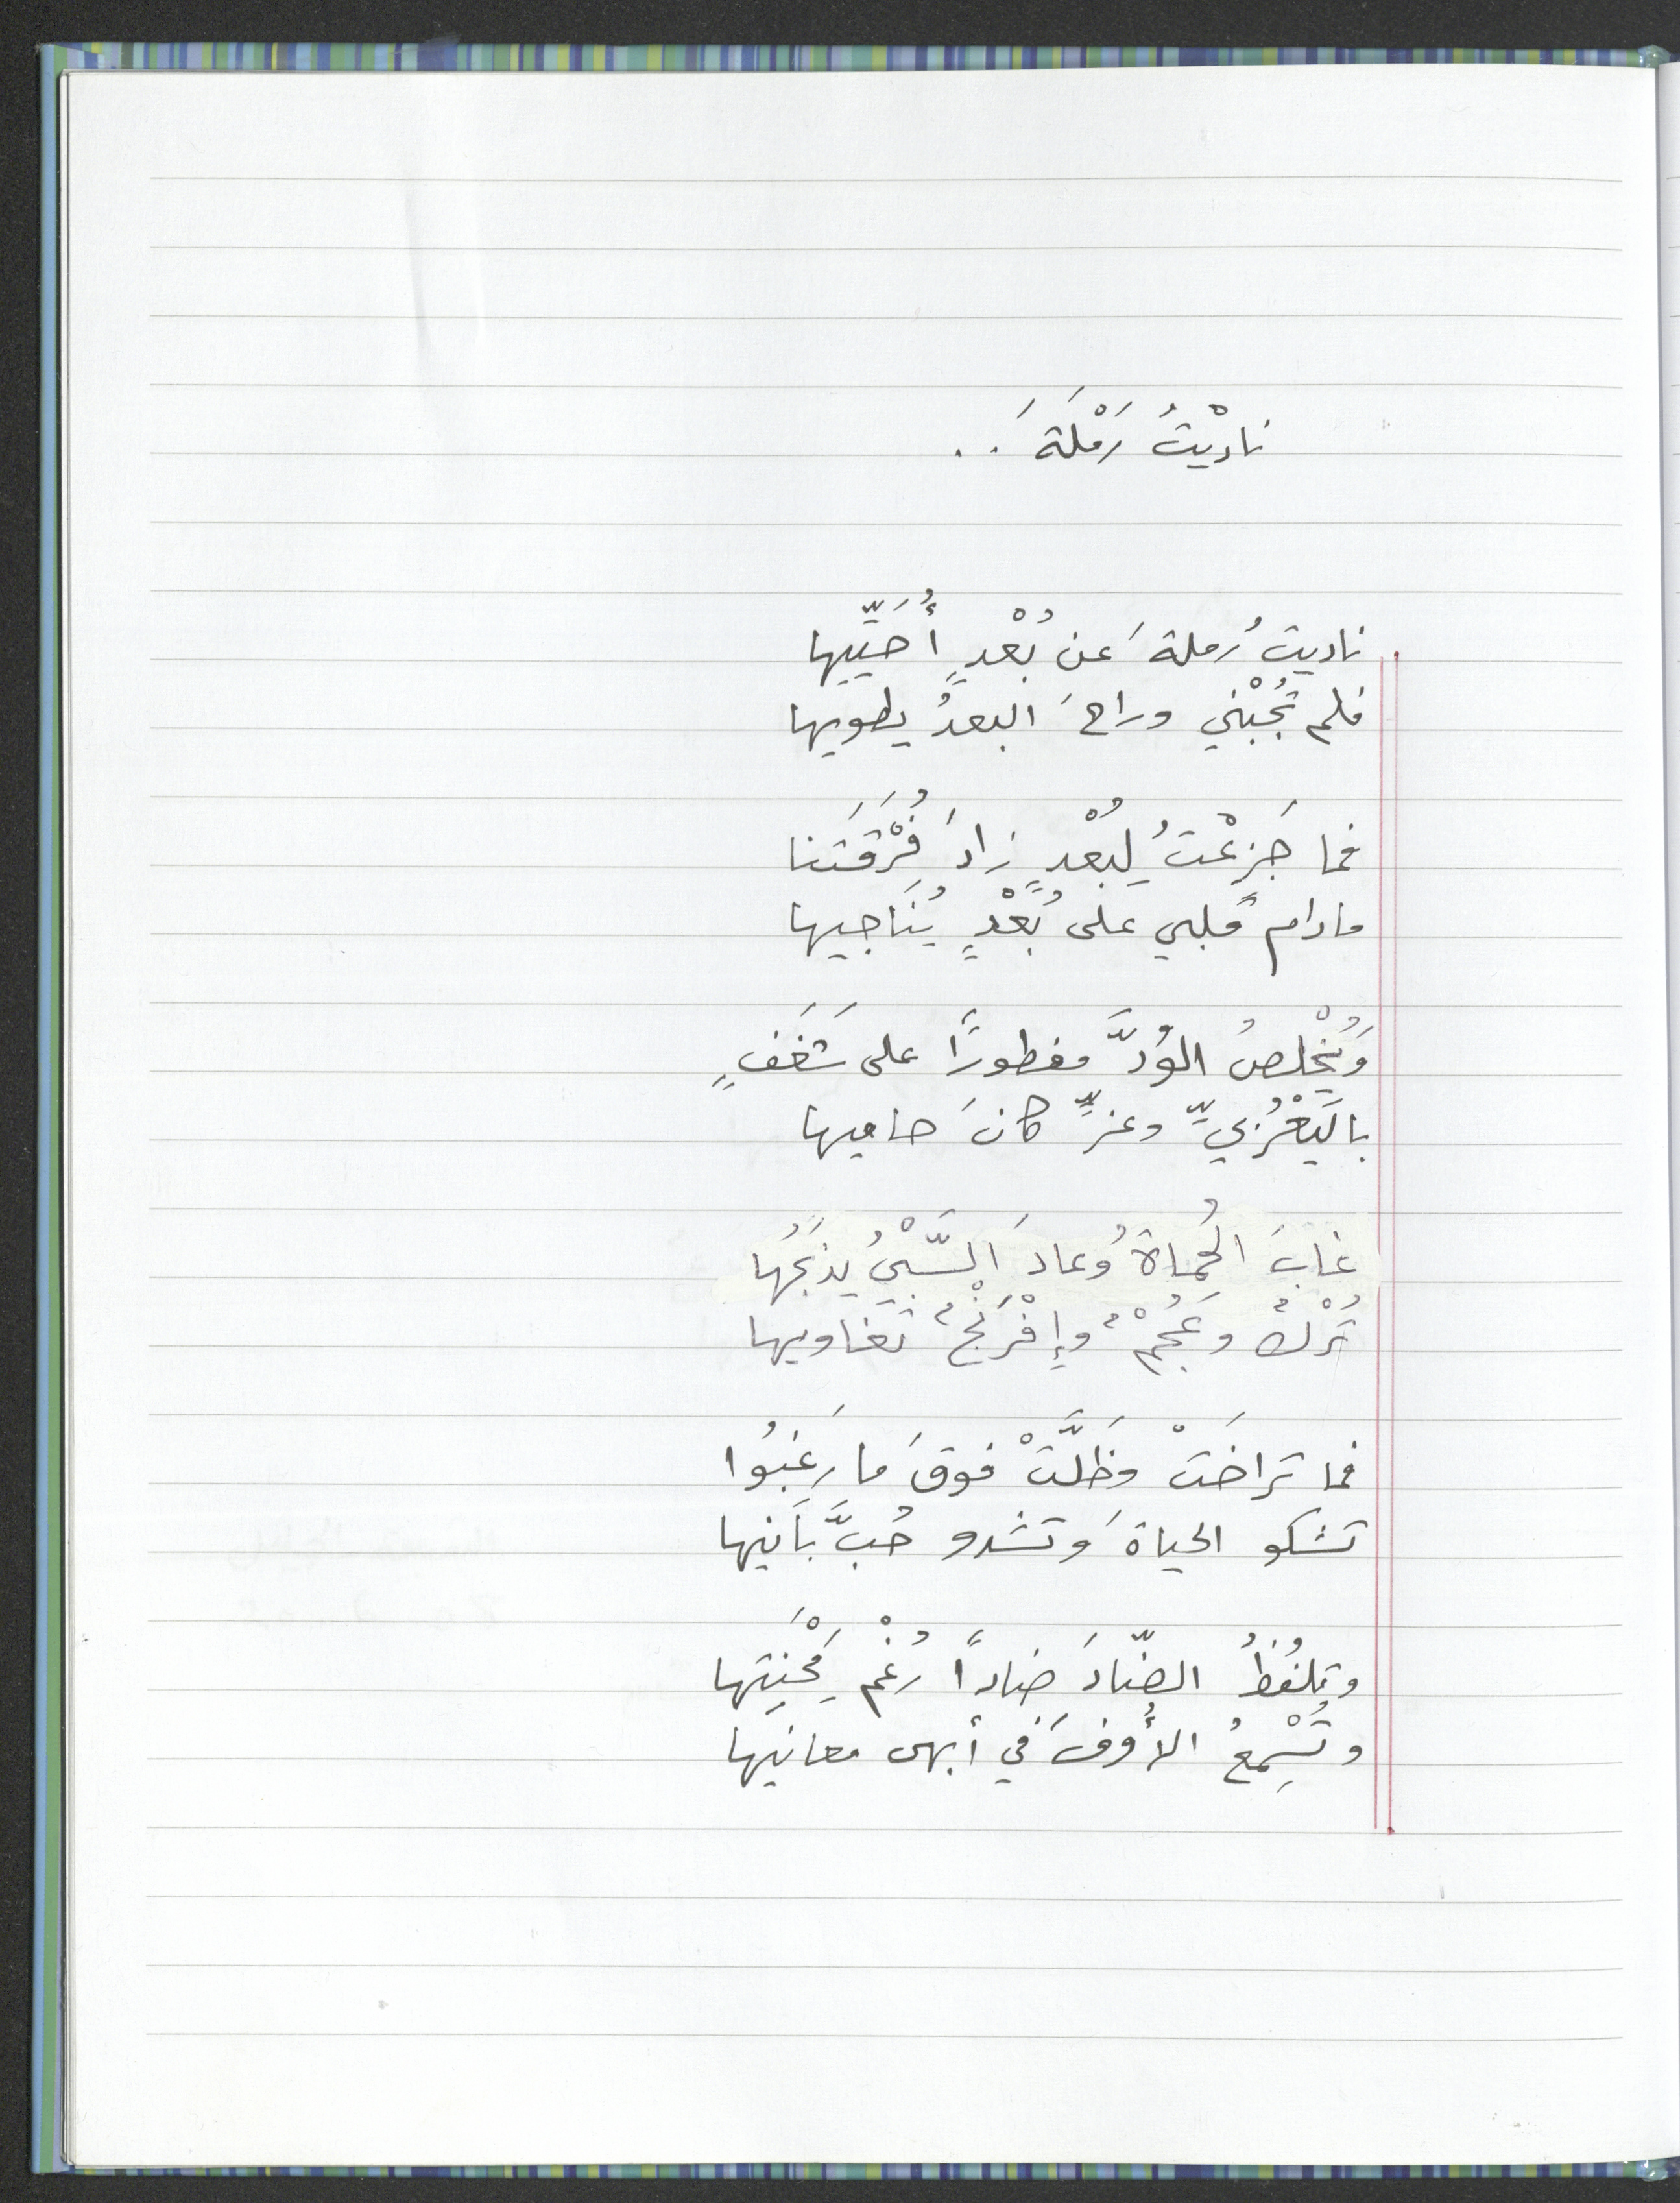 ناديْتُ رَمْلَةَ ..
ناديتُ رملةَ عن بُعْدٍ أُحَيِّيها
فلم تُجِبْني وراحَ البعدُ يطويها
فما جَزِعْتُ لِبُعْدٍ زادَ فُرْقَتَنا
مادام قلبي على بُعْدٍ يُنَاجيها
وَيُخْلِصُ الوُدَّ مفطورًا على شَغَفٍ
باليَعْرُبيِّ وعزٍّ كانَ حاميها
غابَ الحُماةُ وعادَ السَّبْيُ يذبَحُها
تُرْكٌ وعُجْمٌ وإفْرَنْجٌ تغاويها
فما تراخَتْ وظَلَّتْ فوقَ ما رَغِبُوا
تشكو الحياةَ وتشدو حُبَّ بانيها
وتلفُظُ الضّادَ ضاداً رُغْم مِحْنَتِها
وتُسْمِعُ الأُوفَ في أبهى معانيها